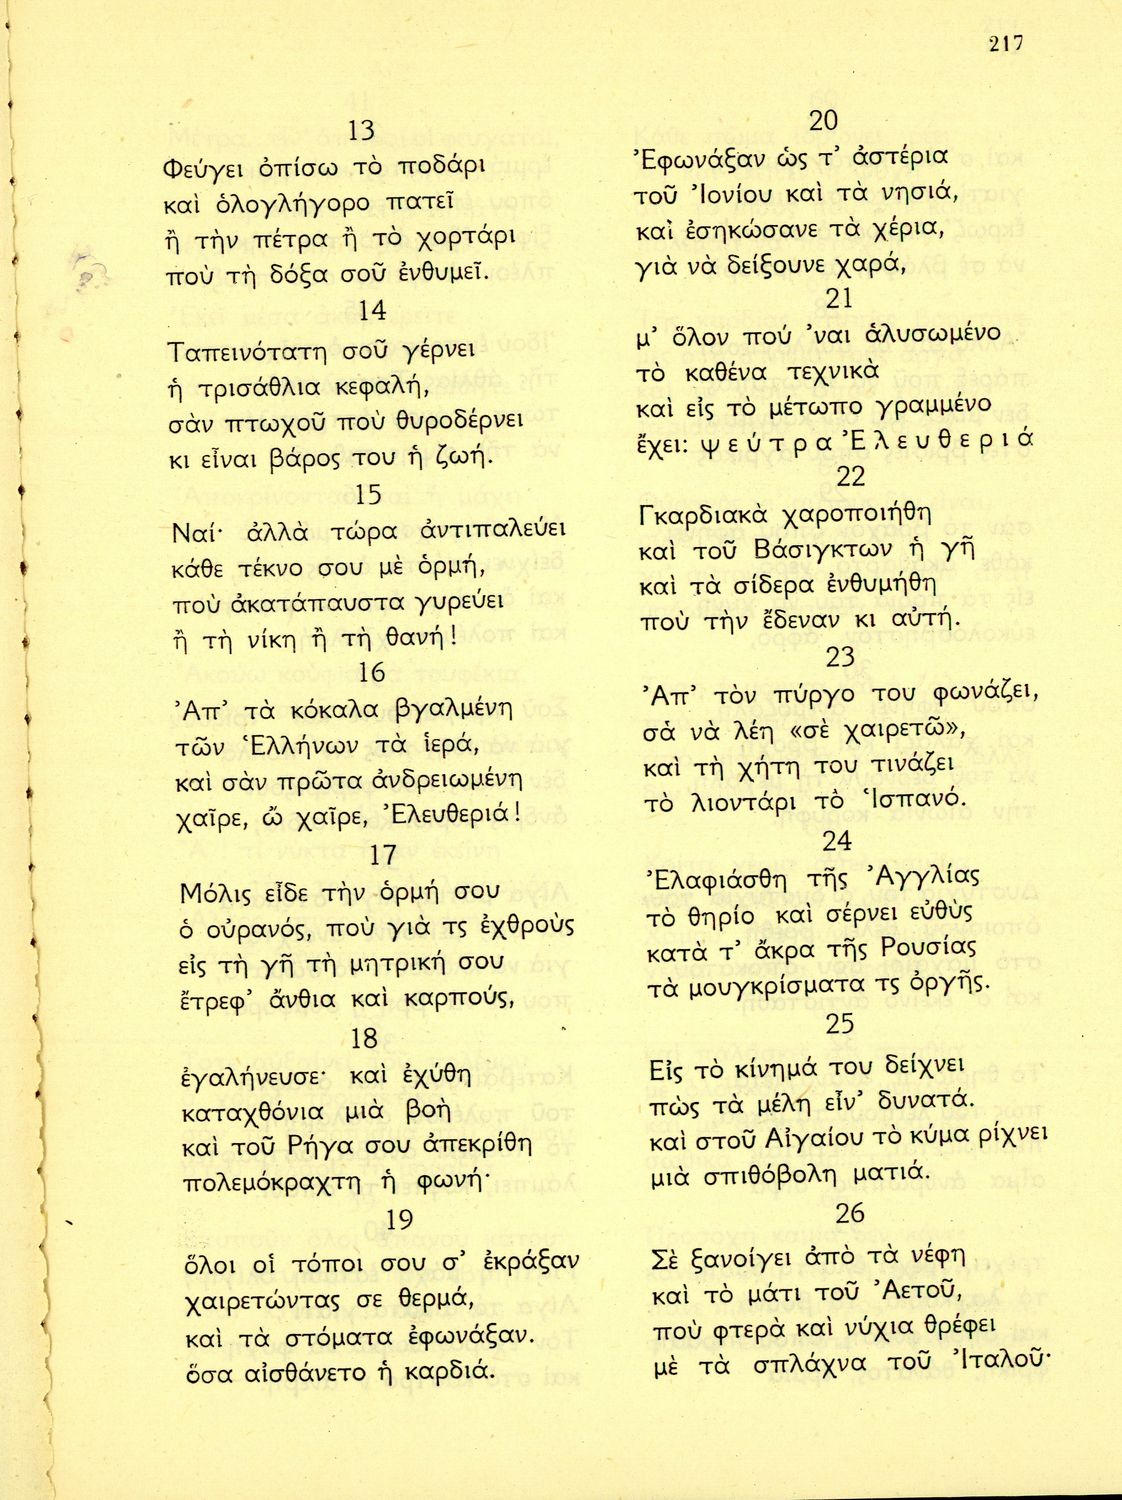 217
13
Φεύγει ὀπίσω τὸ ποδάρι
καὶ ὁλογλήγορο πατεῖ
ἢ τὴν πέτρα ἢ τὸ χορτάρι
ποὺ τὴ δόξα σοῦ ἐνθυμεῖ.
14
Ταπεινότατη σοῦ γέρνει
ἡ τρισάθλια κεφαλή,
σὰν πτωχοῦ ποὺ θυροδέρνει
κι εἶναι βάρος του ἡ ζωή.
15
Ναί· ἀλλὰ τώρα ἀντιπαλεύει
κάθε τέκνο σου μὲ ὁρμή,
ποὺ ἀκατάπαυστα γυρεύει
ἢ τὴ νίκη ἢ τὴ θανή!
16
Ἀπ' τὰ κόκαλα βγαλμένη
τῶν Ἑλλήνων τὰ ἱερά,
καὶ σὰν πρῶτα ἀνδρειωμένη
χαῖρε, ὢ χαῖρε, Ἐλευθεριά!
17
Μόλις εἶδε τὴν ὁρμή σου
ὁ οὐρανός, ποὺ γιὰ τς ἐχθροὺς
εἰς τὴ γῆ τὴ μητρική σου
ἔτρεφ' ἄνθια καὶ καρπούς,
18
ἐγαλήνευσε· καὶ ἐχύθη
καταχθόνια μιὰ βοὴ
καὶ τοῦ Ρήγα σου ἀπεκρίθη
πολεμόκραχτη ἡ φωνή·
19
ὅλοι οἱ τόποι σου σ' ἐκράξαν
χαιρετώντας σε θερμά,
καὶ τὰ στόματα ἐφωνάξαν.
ὅσα αἰσθάνετο ἡ καρδιά.
20
Ἐφωνάξαν ὡς τ' ἀστέρια
τοῦ Ἰονίου καὶ τὰ νησιά,
καὶ ἐσηκώσανε τὰ χέρια,
γιὰ νὰ δείξουνε χαρά,
21
μ' ὅλον πού 'ναι ἁλυσωμένο
τὸ καθένα τεχνικὰ
καὶ εἰς τὸ μέτωπο γραμμένο
ἔχει: ψεύτρα Ἐλευθεριά
22
Γκαρδιακὰ χαροποιήθη
καὶ τοῦ Βάσιγκτων ἡ γῆ
καὶ τὰ σίδερα ἐνθυμήθη
ποὺ τὴν ἔδεναν κι αὐτή.
23
Ἀπ' τὸν πύργο του φωνάζει,
σὰ νὰ λέη «σὲ χαιρετῶ»,
καὶ τὴ χήτη του τινάζει
τὸ λιοντάρι τὸ Ἱσπανό.
24
Ἐλαφιάσθη τῆς Ἀγγλίας
τὸ θηρίο καὶ σέρνει εὐθὺς
κατὰ τ' ἄκρα τῆς Ρουσίας
τὰ μουγκρίσματα τς ὀργῆς.
25
Εἰς τὸ κίνημά του δείχνει
πὼς τὰ μέλη εἶν' δυνατά.
καὶ στοῦ Αἰγαίου τὸ κύμα ρίχνει
μιὰ σπιθόβολη ματιά.
26
Σὲ ξανοίγει ἀπὸ τὰ νέφη
καὶ τὸ μάτι τοῦ Ἀετοῦ,
ποὺ φτερὰ καὶ νύχια θρέφει
μὲ τὰ σπλάχνα τοῦ Ἰταλοῦ·